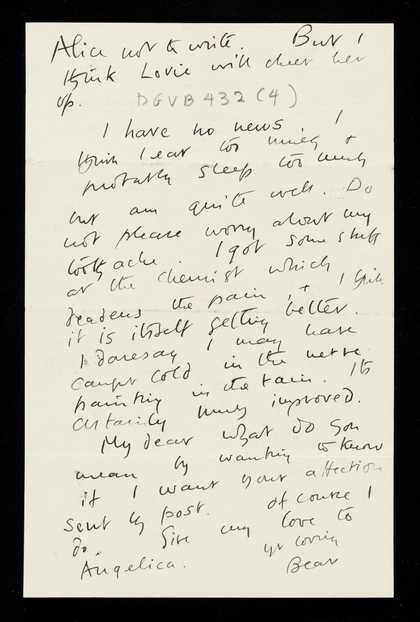 Alice not to write. But I
think Lovie will cheer her
up. DGVB 432 (4)
I have no news. I
think I eat too much &
probably sleep too much
but am quite well. Do
not please worry about my
toothache. I got some stuff
at the chemist which
deadens the pain, & I think
it is itself getting better.
I daresay I may have
caught cold in the nerve
painting in the rain. Its
certainly much improved.
My dear what do you
mean by wanting to know
if I want your affection
sent by post. Of course I
do. Give my love to
Angelica. yr loving
Bear